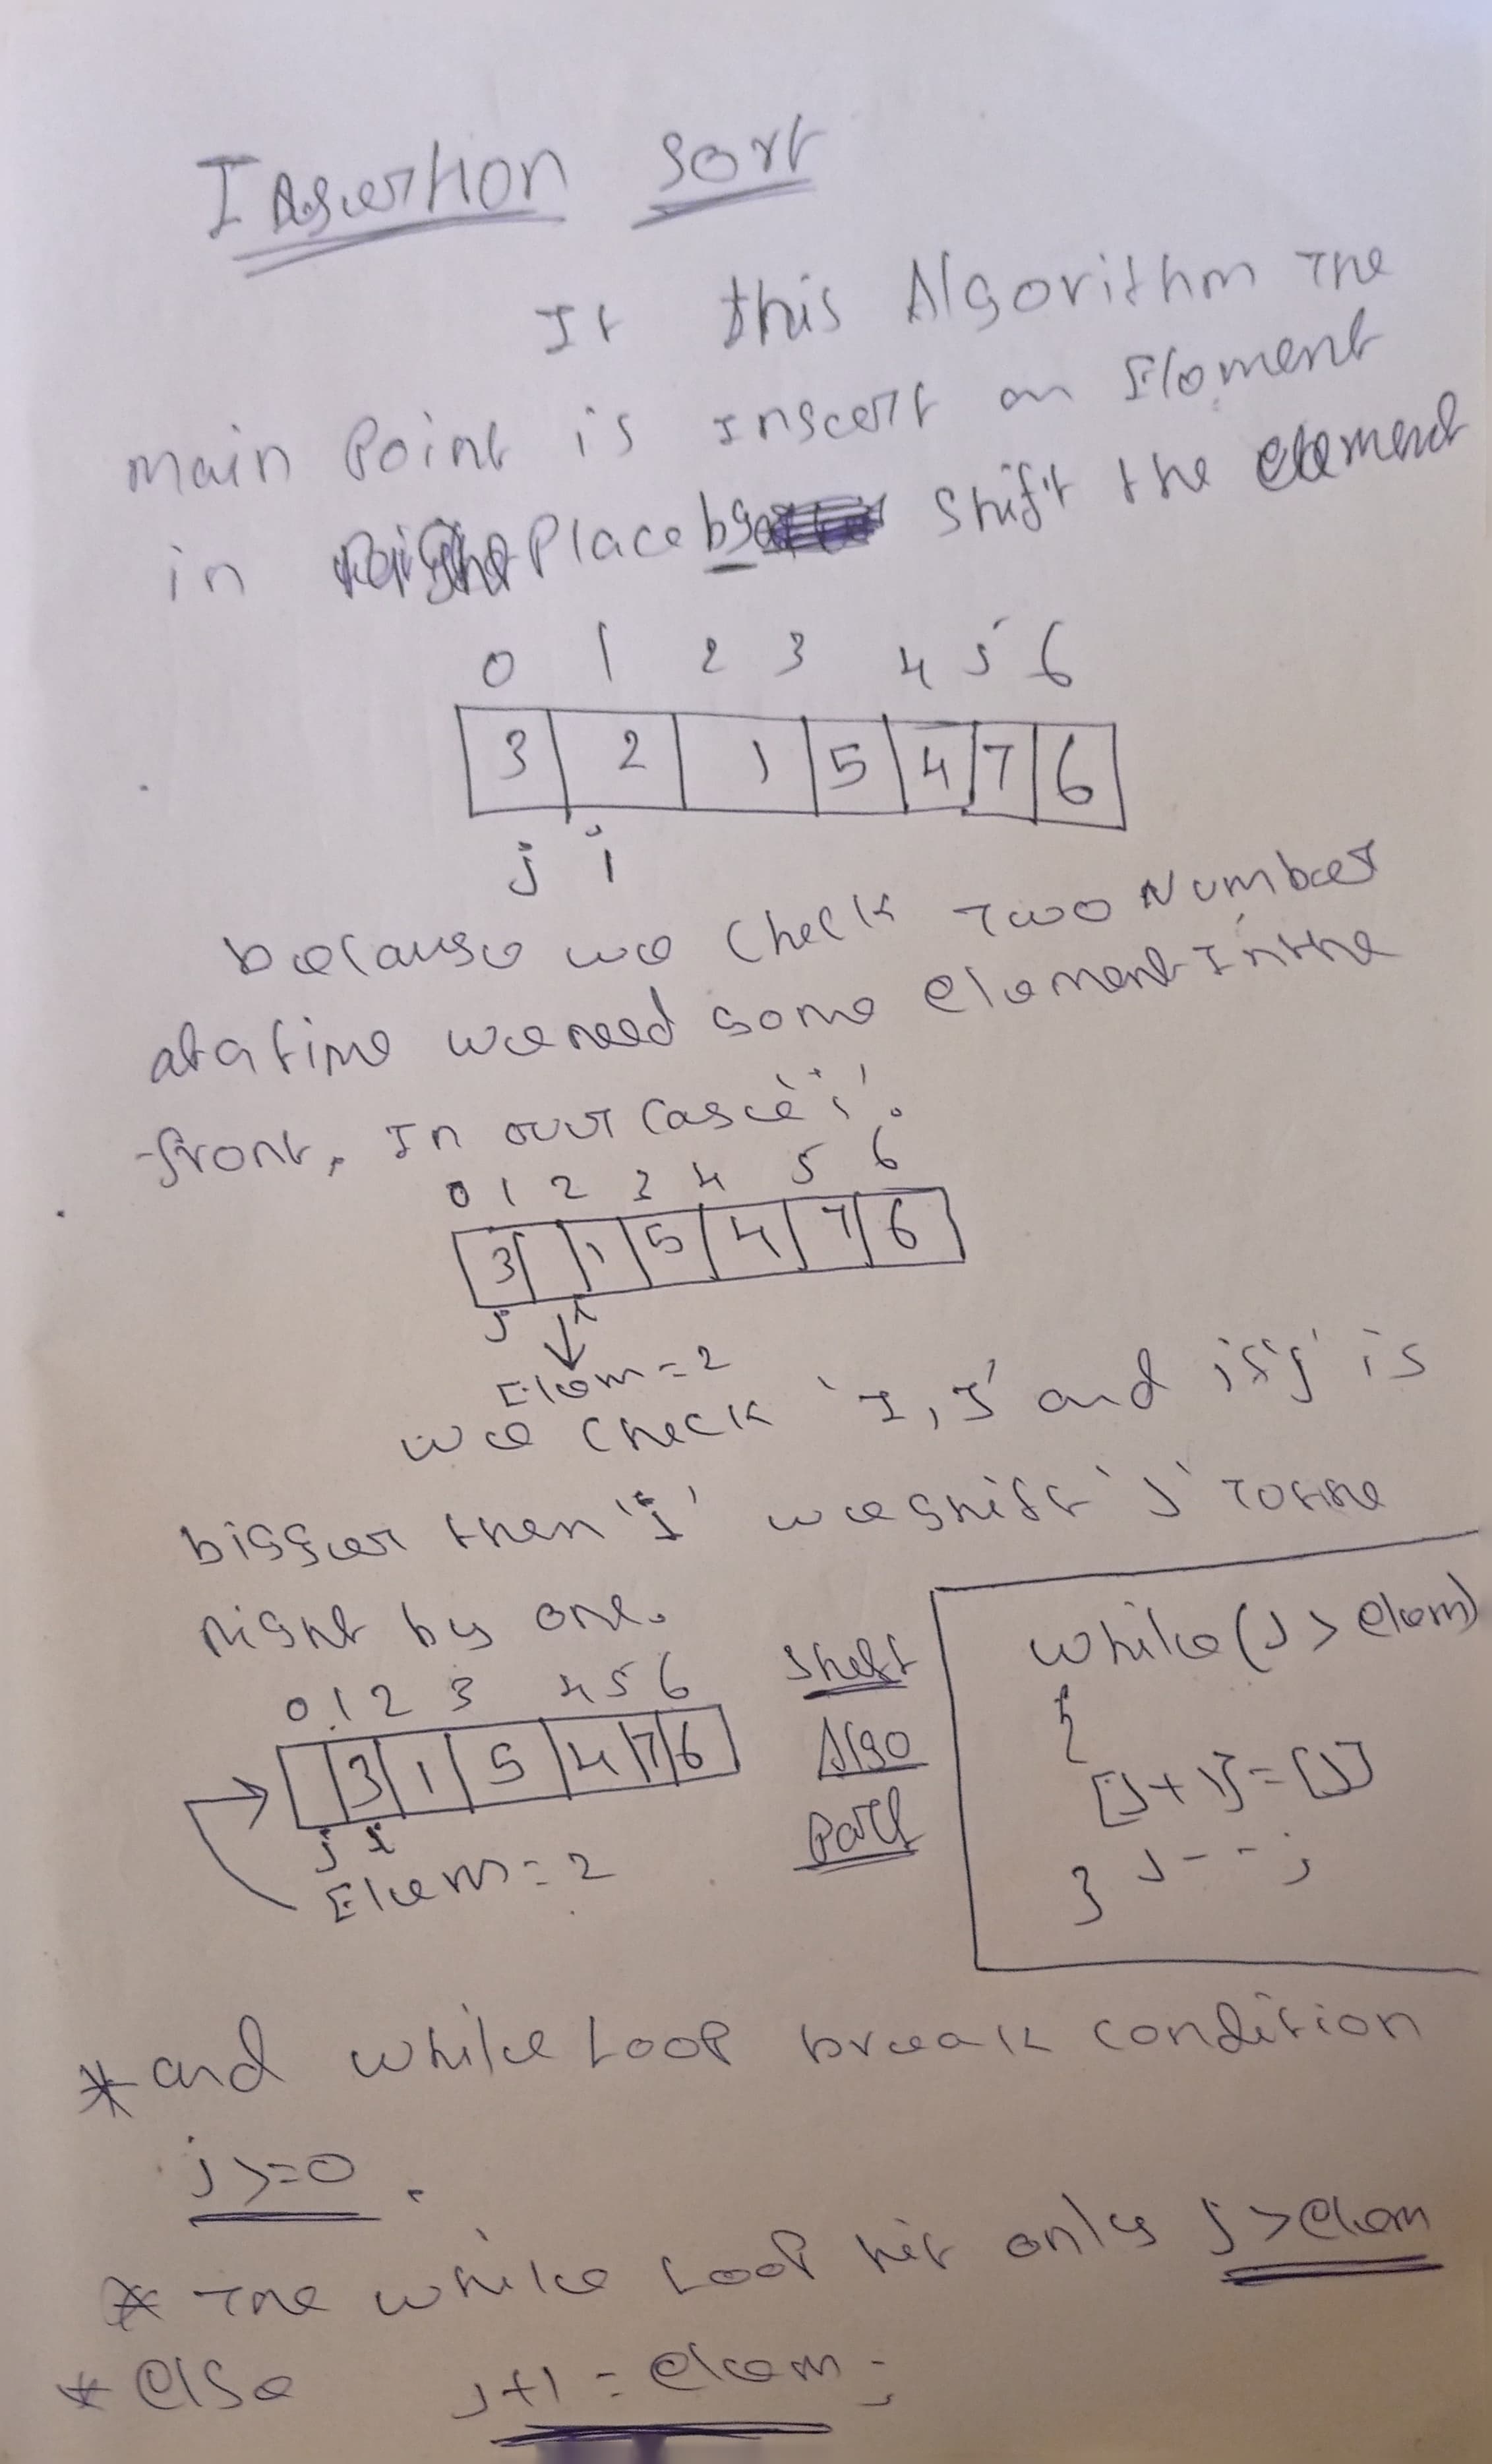 Insertion Sort
It this Algorithm The
main Point is Insert an Eloment
in Right Place by Shift the element
0 1 2 3 4 5 6
3 2 1 5 4 7 6
j i
because we Check Two Number
at a time we need some element In the
front. In our case 'i'.
0 1 2 3 4 5 6
3 1 5 4 7 6
j i
Elem = 2
we check 'I, J' and if 'j' is
bigger then 'i' we shift 'J' To the
right by one.
0 1 2 3 4 5 6
3 1 5 4 7 6
j i
Elem = 2
Shift
Algo
Part
while (J > elem)
{
[J+1] = [J]
J--;
}
* and while Loop break condition
j >= 0.
* The while Loop hit only j > elem
* else j+1 = elem;